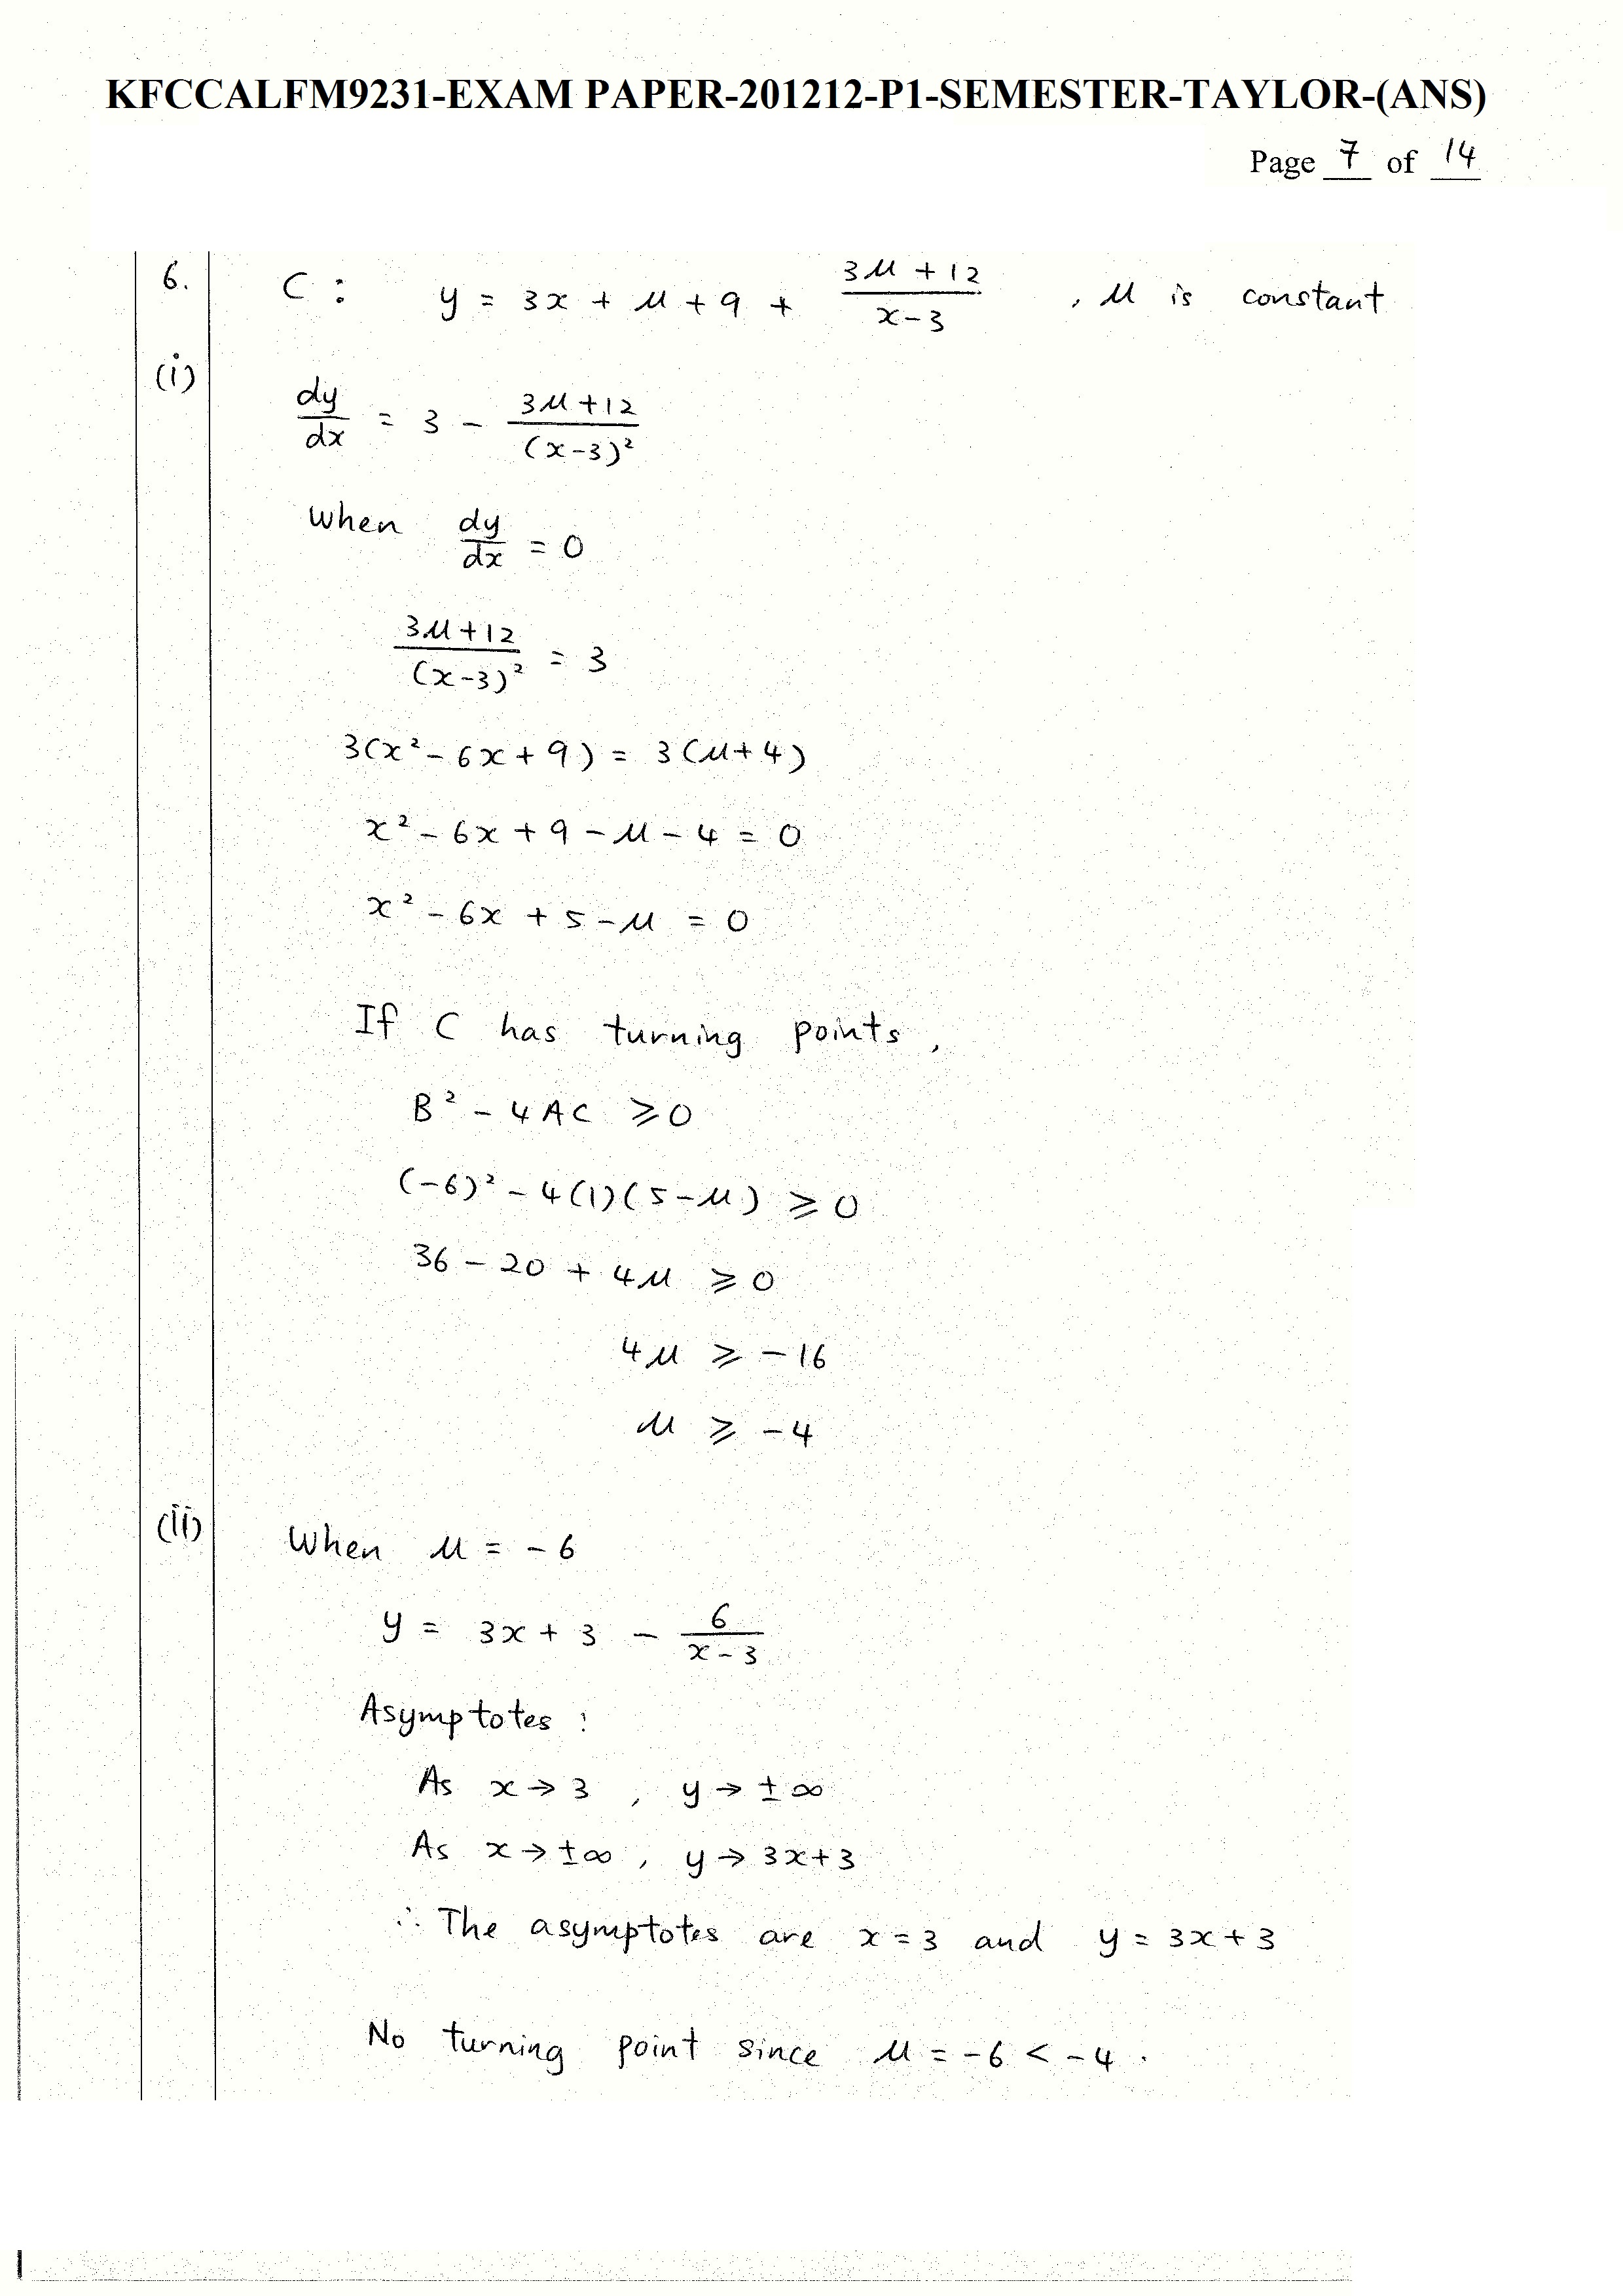 KFCCALFM9231-EXAM PAPER-201212-P1-SEMESTER-TAYLOR-(ANS)
Page 7 of 14
6. C : y = 3x + μ + 9 + (3μ + 12)/(x - 3) , μ is constant
(i) dy/dx = 3 - (3μ + 12)/(x-3)²
When dy/dx = 0
(3μ + 12)/(x-3)² = 3
3(x² - 6x + 9) = 3(μ + 4)
x² - 6x + 9 - μ - 4 = 0
x² - 6x + 5 - μ = 0
If C has turning points,
B² - 4AC ⩾ 0
(-6)² - 4(1)(5-μ) ⩾ 0
36 - 20 + 4μ ⩾ 0
4μ ⩾ -16
μ ⩾ -4
(ii) When μ = -6
y = 3x + 3 - 6/(x - 3)
Asymptotes :
As x → 3 , y → ±∞
As x → ±∞ , y → 3x+3
∴ The asymptotes are x = 3 and y = 3x + 3
No turning point since μ = -6 < -4 .